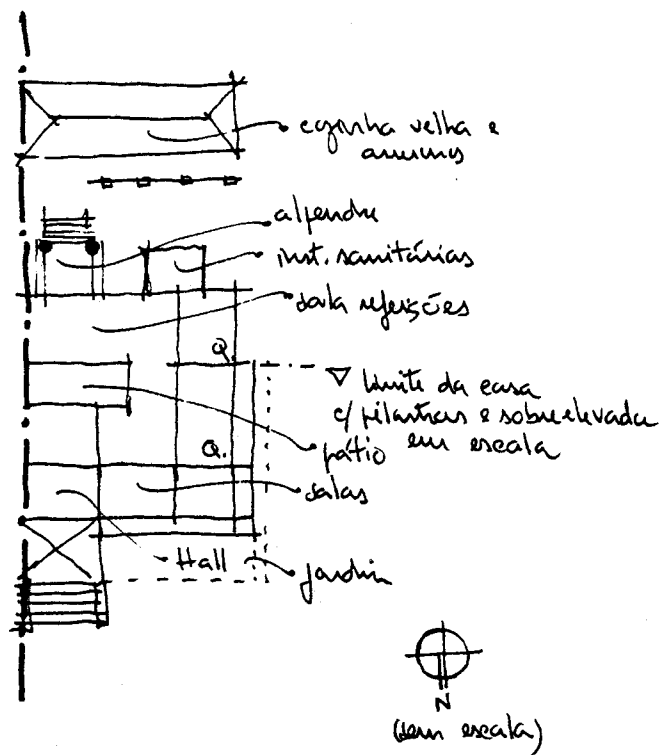 cozinha velha e
anexos
alpendre
inst. sanitárias
sala refeições
Q.
limite da casa
c/ pilastras e sobreelevada
em escala
pátio
Q.
salas
Hall
jardim
N
(sem escala)